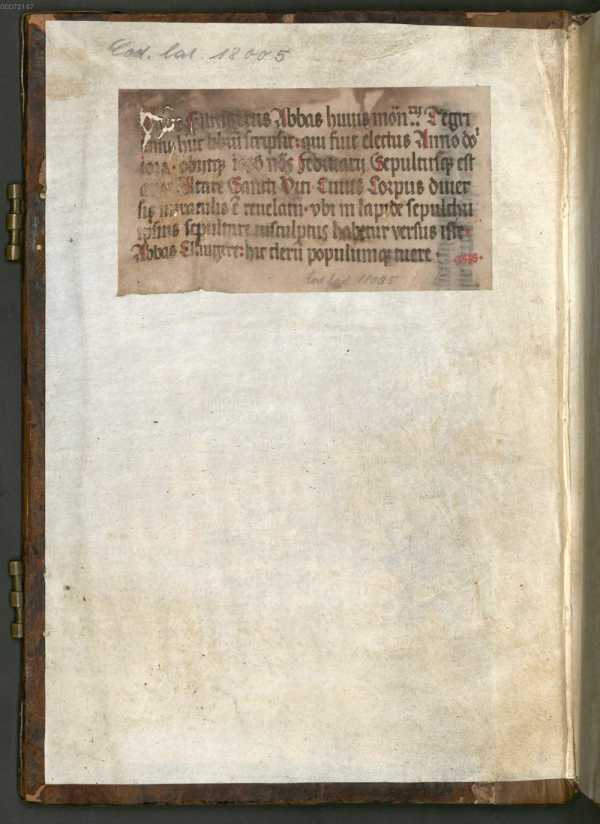 00072167
Cod. lat. 18005
Ellingerus Abbas huius mōn Tegri
hūc librū scripsit: qui fuit electus Anno do
obiitqȝ 1056 nōs Februarij Sepultusqȝ est
Altare Sancti Viti Cuius Corpus diuer
sis miraculis ē reuelatū · vbi in lapide sepulchri
ipsius sepulture insculptus habetur versus iste ·
Abbas Ellingere: hic clerū populumqȝ tuere ·
Cod. lat. 18005